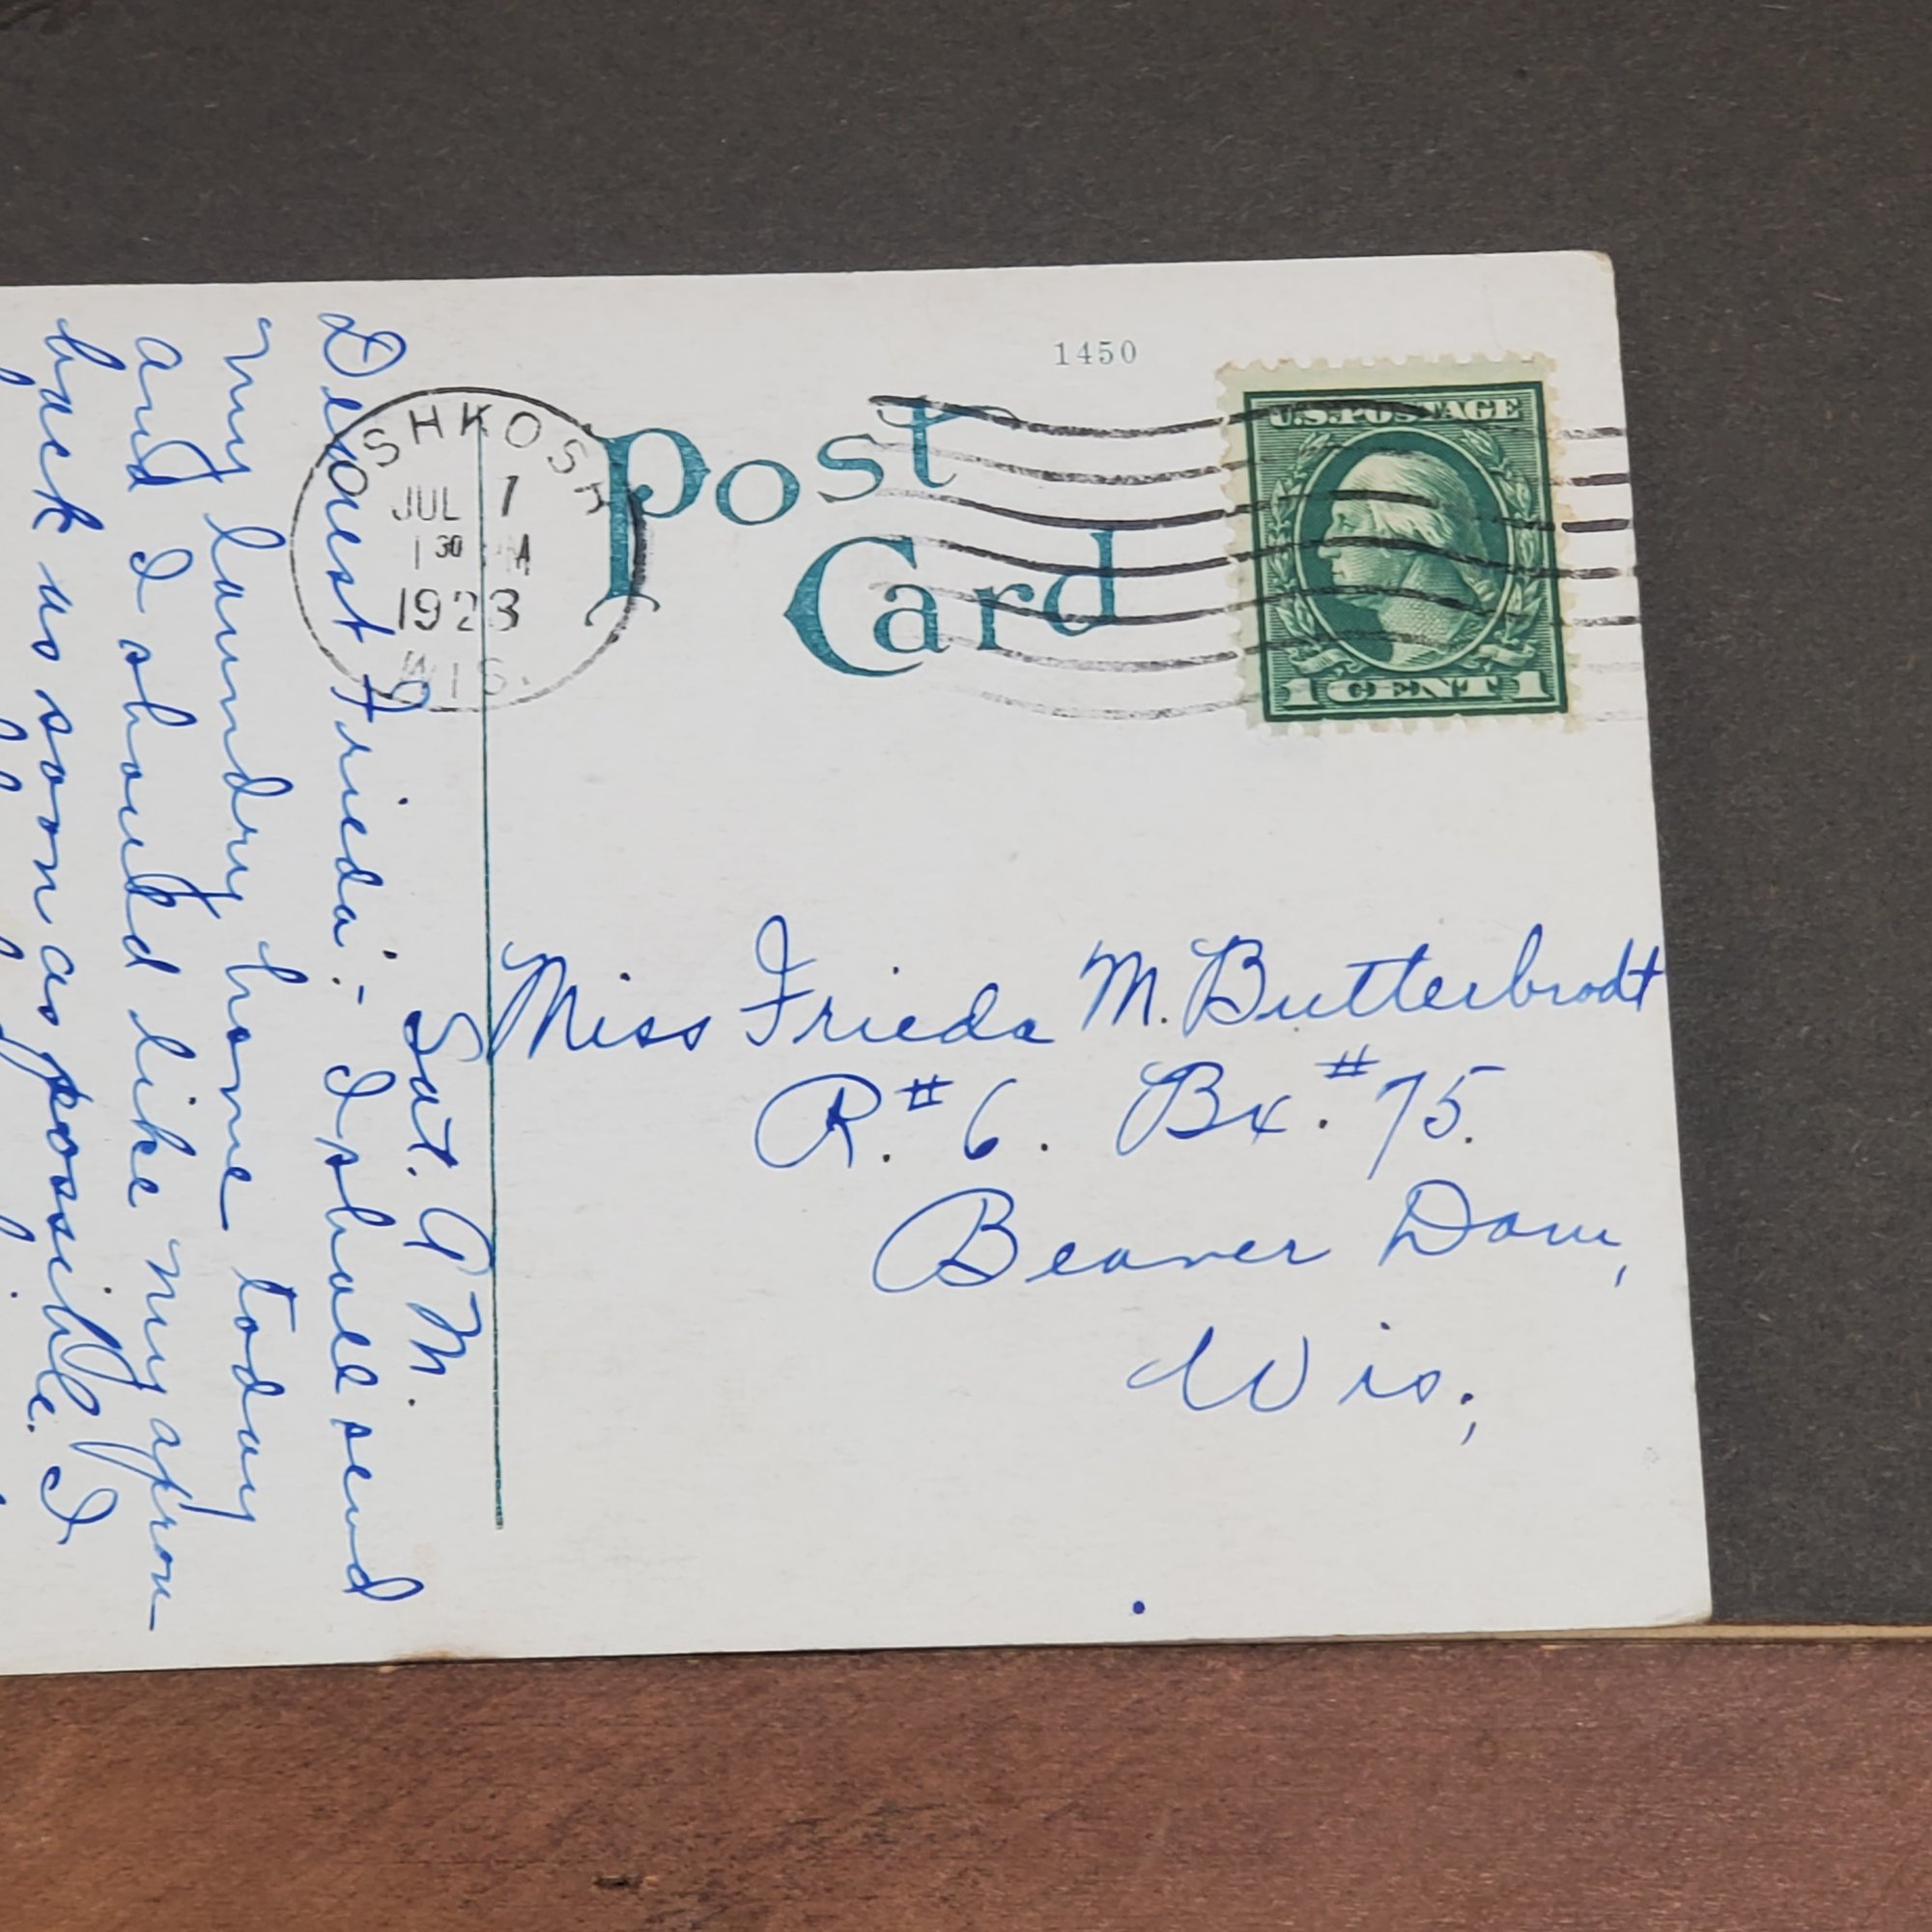 1450
Post
Card
OSHKOSH
JUL 7
1 30
1923
WIS.
U.S. POSTAGE
1 CENT 1
Miss Frieda M. Butterbrodt
R.#6. Bx.#75.
Beaver Dam,
Wis.,
Sat. A M.
Dearest Frieda:- I shall send
my laundry home today
and I should like my apron
back as soon as possible. I